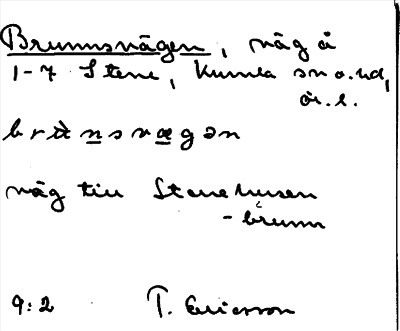 Brunnsvägen, väg å
1-7 Stene, Kumla sn o. hd,
ör. l.
brùnsvægən
väg till Stenehusen
-brunn
9:2 T. Ericsson